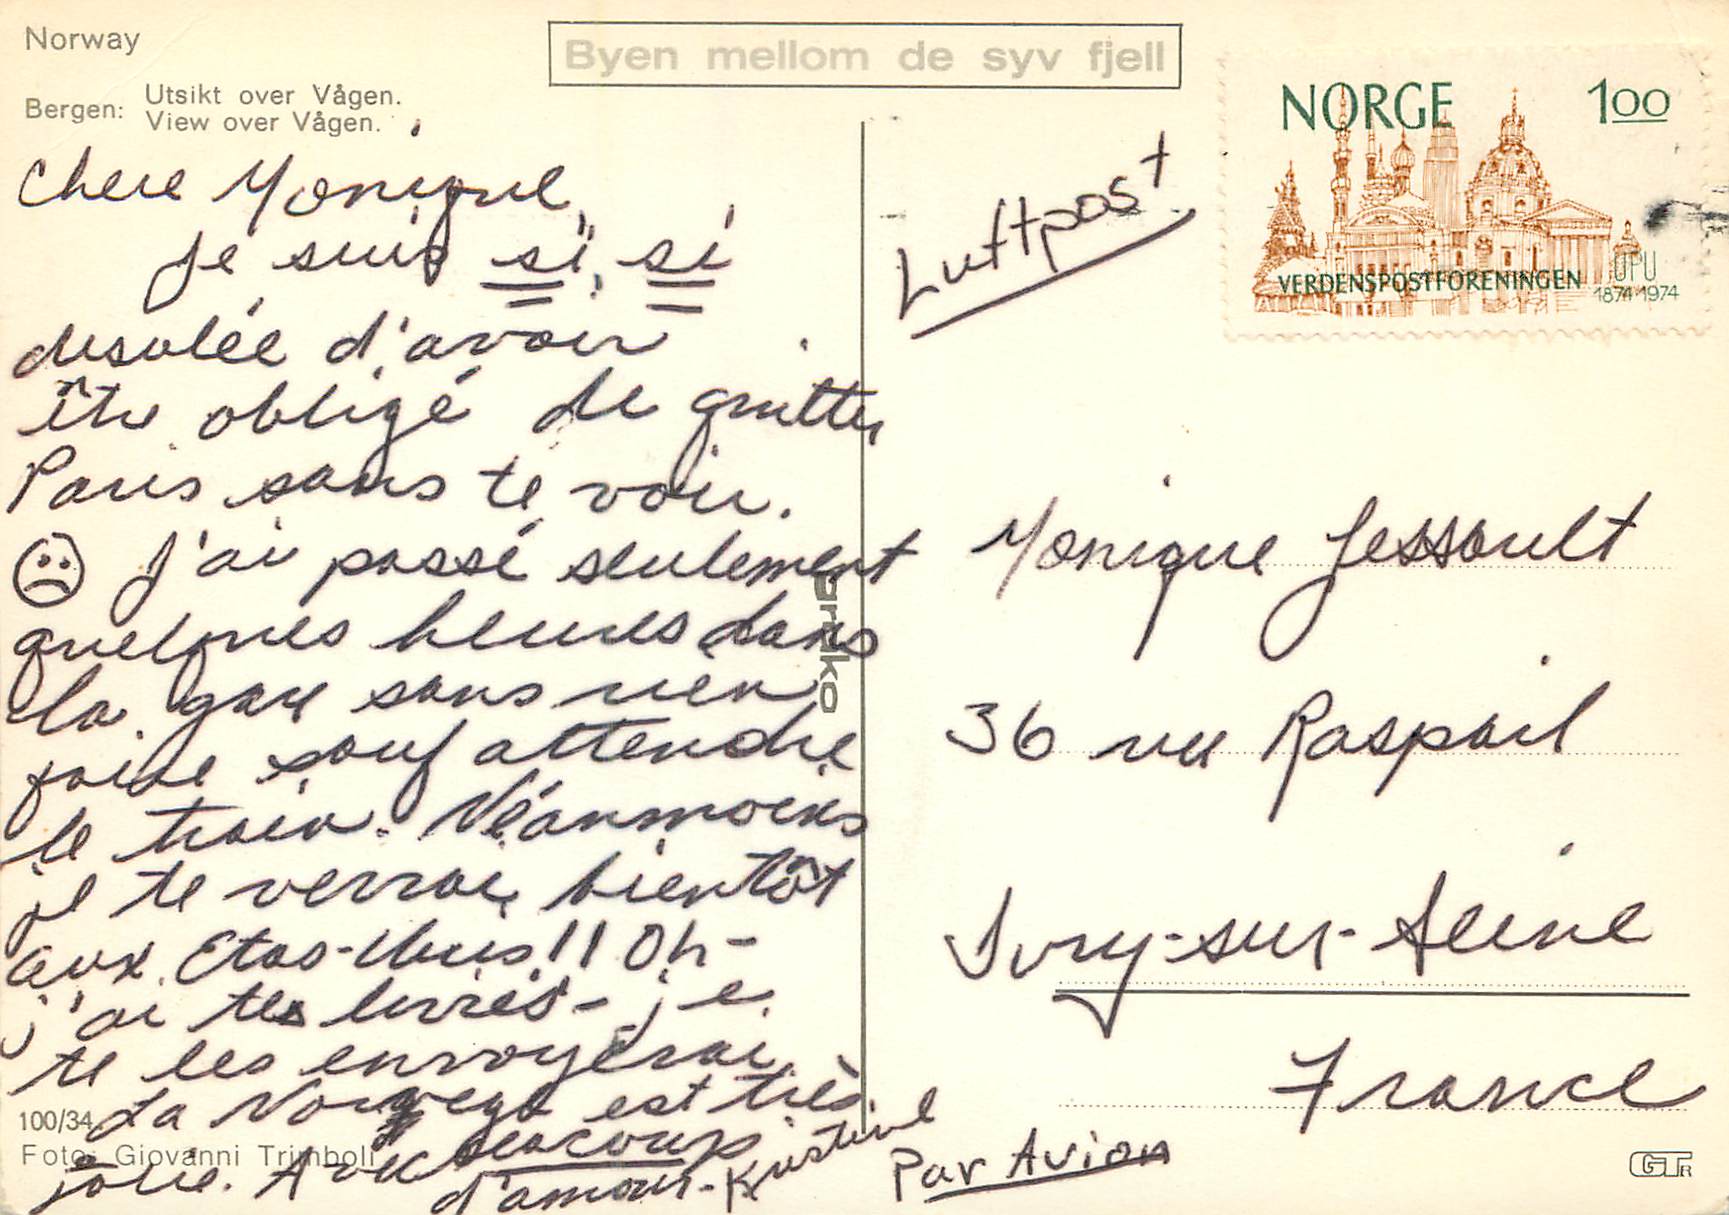 Norway
Byen mellom de syv fjell
Bergen: Utsikt over Vågen.
View over Vågen.
NORGE 100
VERDENSPOSTFORENINGEN
UPU
1874-1974
Chere Monique,
Je suis si, si
desolée d'avoir
être obligé de quitter
Paris sans te voir.
J'ai passé seulement
quelques heures dans
la gare sans rien
faire sauf attendre
le train. Néanmoins
je te verrai bientôt
aux Etas-Unis!! Oh-
j'ai tes livres - je
te les enverrai
La Norvege est très
jolie. Avec beaucoup
d'amour - Kristine
Luftpost
Monique Jessault
36 rue Raspail
Ivry-sur-Seine
France
Par Avion
100/34
Foto: Giovanni Trimboli
GTR